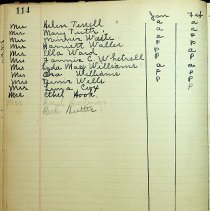 114
Jan Feb
Mrs Helen Terrell a a
Mrs Mary Tuttle a a
Mrs Minnie Waste a P
Mrs Harriett Waller P P
Mrs Ella Ward a P
Mrs Fannie C Whetzell P P
Mrs Lyda May Williams a a
Mrs Ora Williams P P
Mrs Jennie Wells P P
Mrs Lena Cox P
Mrs Ethel Hook
Ruth Butts